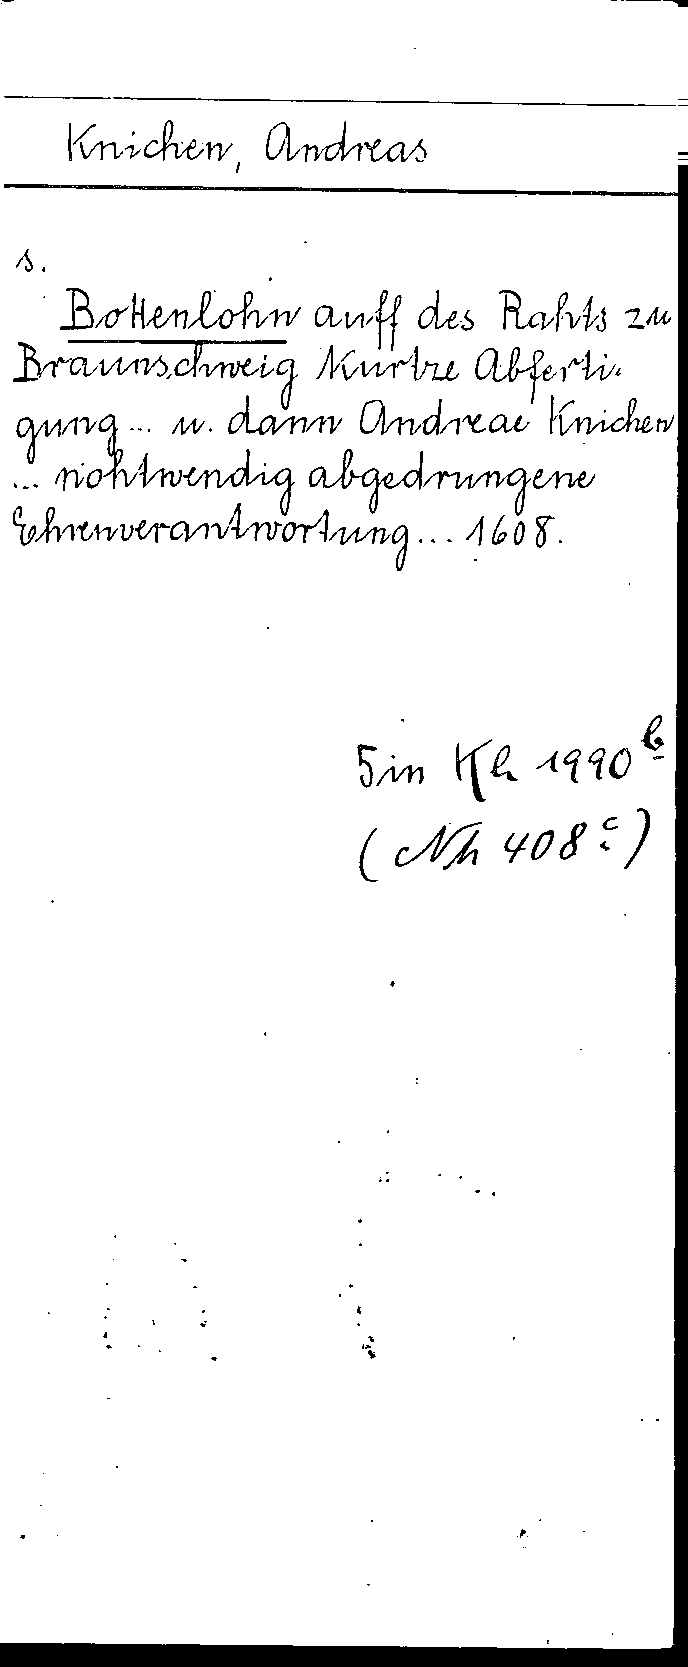 Knichen, Andreas
s.
Bottenlohn auff des Rahts zu
Braunschweig Kurtze Abferti-
gung... u. dann Andreae Knichen
... nohtwendig abgedrungene
Ehrenverantwortung... 1608.
5 in Kh 1990 b
(Nh 408 c)